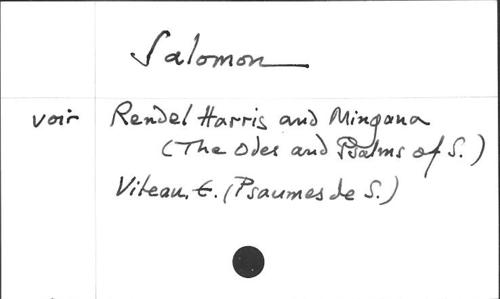 Salomon
voir Rendel Harris and Mingana
(The Odes and Psalms of S.)
Viteau, E. (Psaumes de S.)